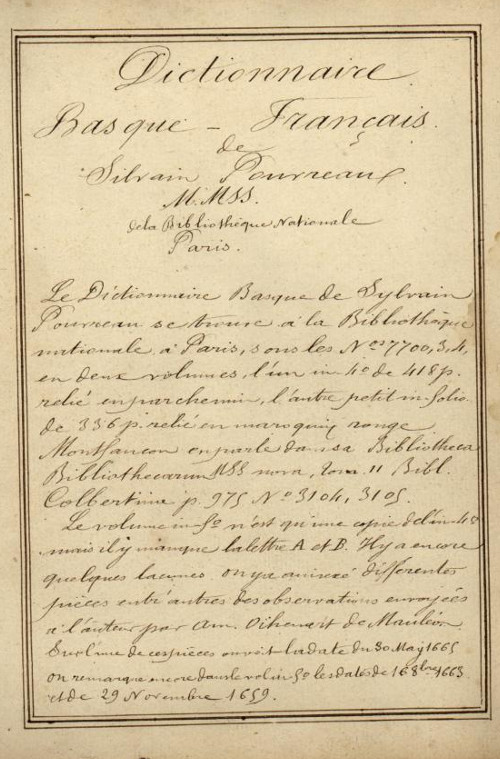 Dictionnaire
Basque - Français.
de
Silvain Pourreau.
M.MSS.
de la Bibliothèque Nationale
Paris.
Le Dictionnaire Basque de Sylvain
Pourreau se trouve à la Bibliothèque
nationale à Paris, sous les Nos 7700, 3, 4,
en deux volumes, l'un in 4o de 418 p.
relié en parchemin, l'autre petit in folio
de 336 p. relié en maroquin rouge
Montfaucon en parle dans sa Bibliotheca
Bibliothecarum MSS nova, Tom. 11 Bibl.
Colbertina p. 975 No 3104, 3105.
Le volume in fo n'est qu'une copie de l'in 4o
mais il y manque la lettre A et B. Il y a encore
quelques lacunes. on y a annexé différentes
pièces entr'autres des observations envoyées
à l'auteur par Am. Oihenart de Mauléon
Sur l'une de ces pièces on voit la date du 30 Maj 1665
on remarque encore dans le vol in fo les dates de 16 8bre 1663
et de 29 Novembre 1659.